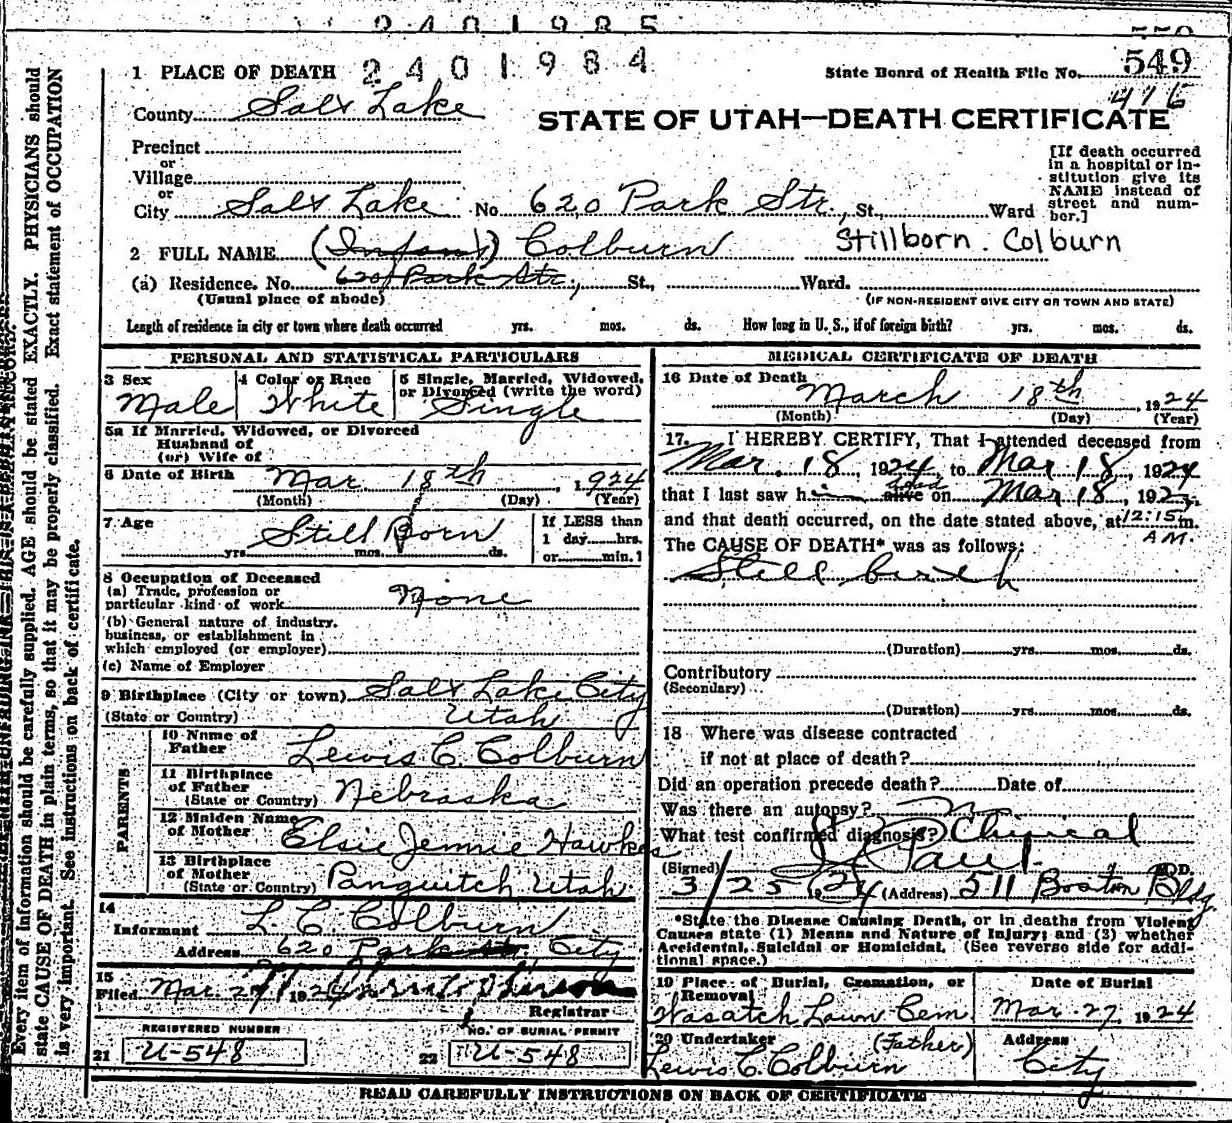 2401985
550
1 PLACE OF DEATH 2401984 State Board of Health File No. 549
416
County Salt Lake
STATE OF UTAH—DEATH CERTIFICATE
Precinct
or
Village
or
City Salt Lake No. 620 Park Str., St., Ward
[If death occurred
in a hospital or in-
stitution give its
NAME instead of
street and num-
ber.]
2 FULL NAME (Infant) Colburn Stillborn. Colburn
(a) Residence. No. 620 Park Str., St., Ward.
(Usual place of abode) (IF NON-RESIDENT GIVE CITY OR TOWN AND STATE)
Length of residence in city or town where death occurred yrs. mos. ds. How long in U. S., if of foreign birth? yrs. mos. ds.
PERSONAL AND STATISTICAL PARTICULARS
3 Sex 4 Color or Race 5 Single, Married, Widowed,
or Divorced (write the word)
Male White Single
5a If Married, Widowed, or Divorced
Husband of
(or) Wife of
6 Date of Birth Mar. 18th 1924
(Month) (Day) (Year)
7 Age Still Born
yrs. mos. ds.
If LESS than
1 day hrs.
or min. 1
8 Occupation of Deceased
(a) Trade, profession or
particular kind of work None
(b) General nature of industry,
business, or establishment in
which employed (or employer)
(c) Name of Employer
9 Birthplace (City or town) Salt Lake City
(State or Country) Utah
PARENTS
10 Name of
Father Lewis C. Colburn
11 Birthplace
of Father
(State or Country) Nebraska
12 Maiden Name
of Mother Elsie Jennie Hawkes
13 Birthplace
of Mother
(State or Country) Panguitch Utah.
14
Informant L. C. Colburn
Address 620 Park St., City
15
Filed Mar. 27 1924
Registrar
REGISTERED NUMBER NO. OF BURIAL PERMIT
21 U-548 22 U-548
MEDICAL CERTIFICATE OF DEATH
16 Date of Death March 18th, 1924
(Month) (Day) (Year)
17. I HEREBY CERTIFY, That I attended deceased from
Mar. 18, 1924 to Mar 18, 1924
that I last saw him alive dead on Mar 18, 192
and that death occurred, on the date stated above, at 12:15 m.
A.M.
The CAUSE OF DEATH* was as follows:
Still birth
(Duration) yrs. mos. ds.
Contributory
(Secondary)
(Duration) yrs. mos. ds.
18 Where was disease contracted
if not at place of death?
Did an operation precede death? Date of
Was there an autopsy? No
What test confirmed diagnosis? Clinical
(Signed) Paul M.D.
3/25 1924 (Address) 511 Boston Bldg.
*State the Disease Causing Death, or in deaths from Violent
Causes state (1) Means and Nature of Injury; and (2) whether
Accidental, Suicidal or Homicidal. (See reverse side for addi-
tional space.)
19 Place of Burial, Cremation, or
Removal Date of Burial
Wasatch Lawn Cem. Mar. 27, 1924
20 Undertaker (Father) Address
Lewis C. Colburn City
READ CAREFULLY INSTRUCTIONS ON BACK OF CERTIFICATE
Every item of information should be carefully supplied. AGE should be stated EXACTLY. PHYSICIANS should
state CAUSE OF DEATH in plain terms, so that it may be properly classified. Exact statement of OCCUPATION
is very important. See instructions on back of certificate.